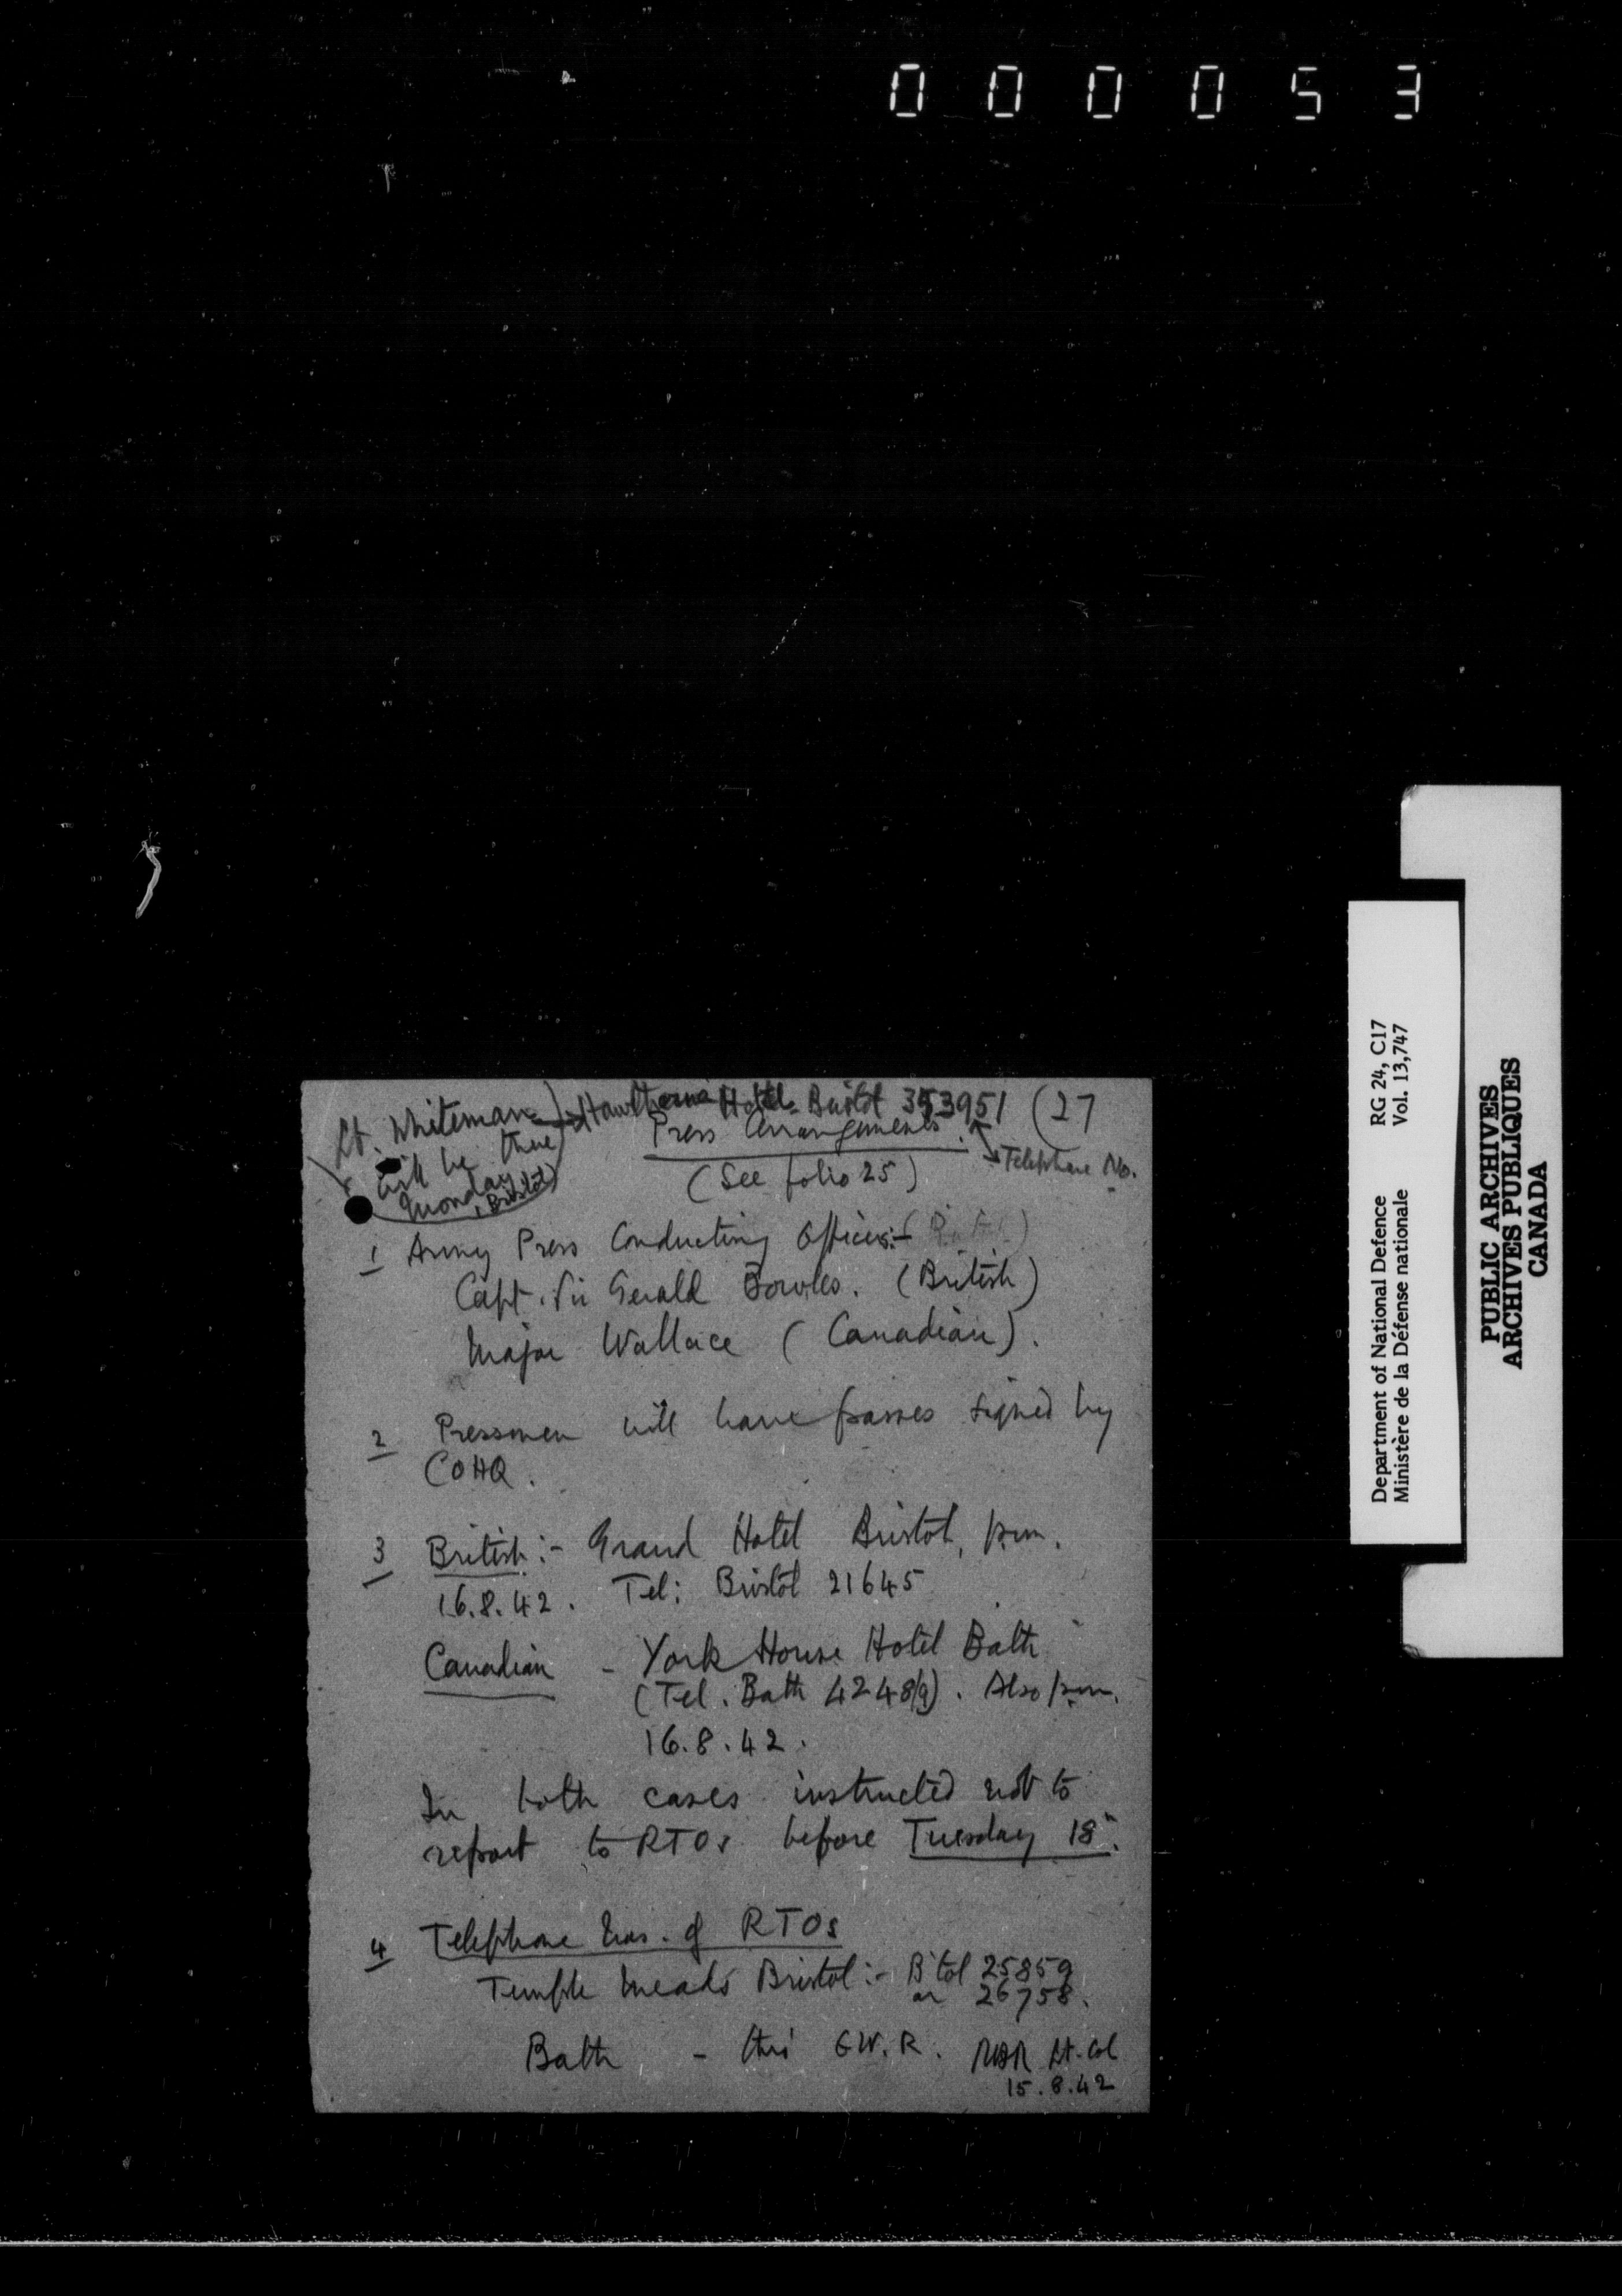 000053
Lt. Whiteman → Hawthorns Hotel - Bristol 353951 (27
will be there
Monday, Bristol)
Press Arrangements.
Telephone No.
(See folio 25)
1 Army Press Conducting Officers:-
Capt. Sir Gerald Bowles. (British)
Major Wallace (Canadian).
2 Pressmen will have passes signed by
COHQ.
3 British:- Grand Hotel Bristol, p.m.
16.8.42. Tel: Bristol 21645
Canadian - York House Hotel Bath
(Tel. Bath 4248/9). Also p.m.
16.8.42.
In both cases instructed not to
report to RTOs before Tuesday 18th.
4 Telephone Nos. of RTOs
Temple Meads Bristol:- B'tol 25859
or 26758.
Bath - thro' G.W.R. Lt. Col
15.8.42
Department of National Defence RG 24, C17
Ministère de la Défense nationale Vol. 13,747
PUBLIC ARCHIVES
ARCHIVES PUBLIQUES
CANADA